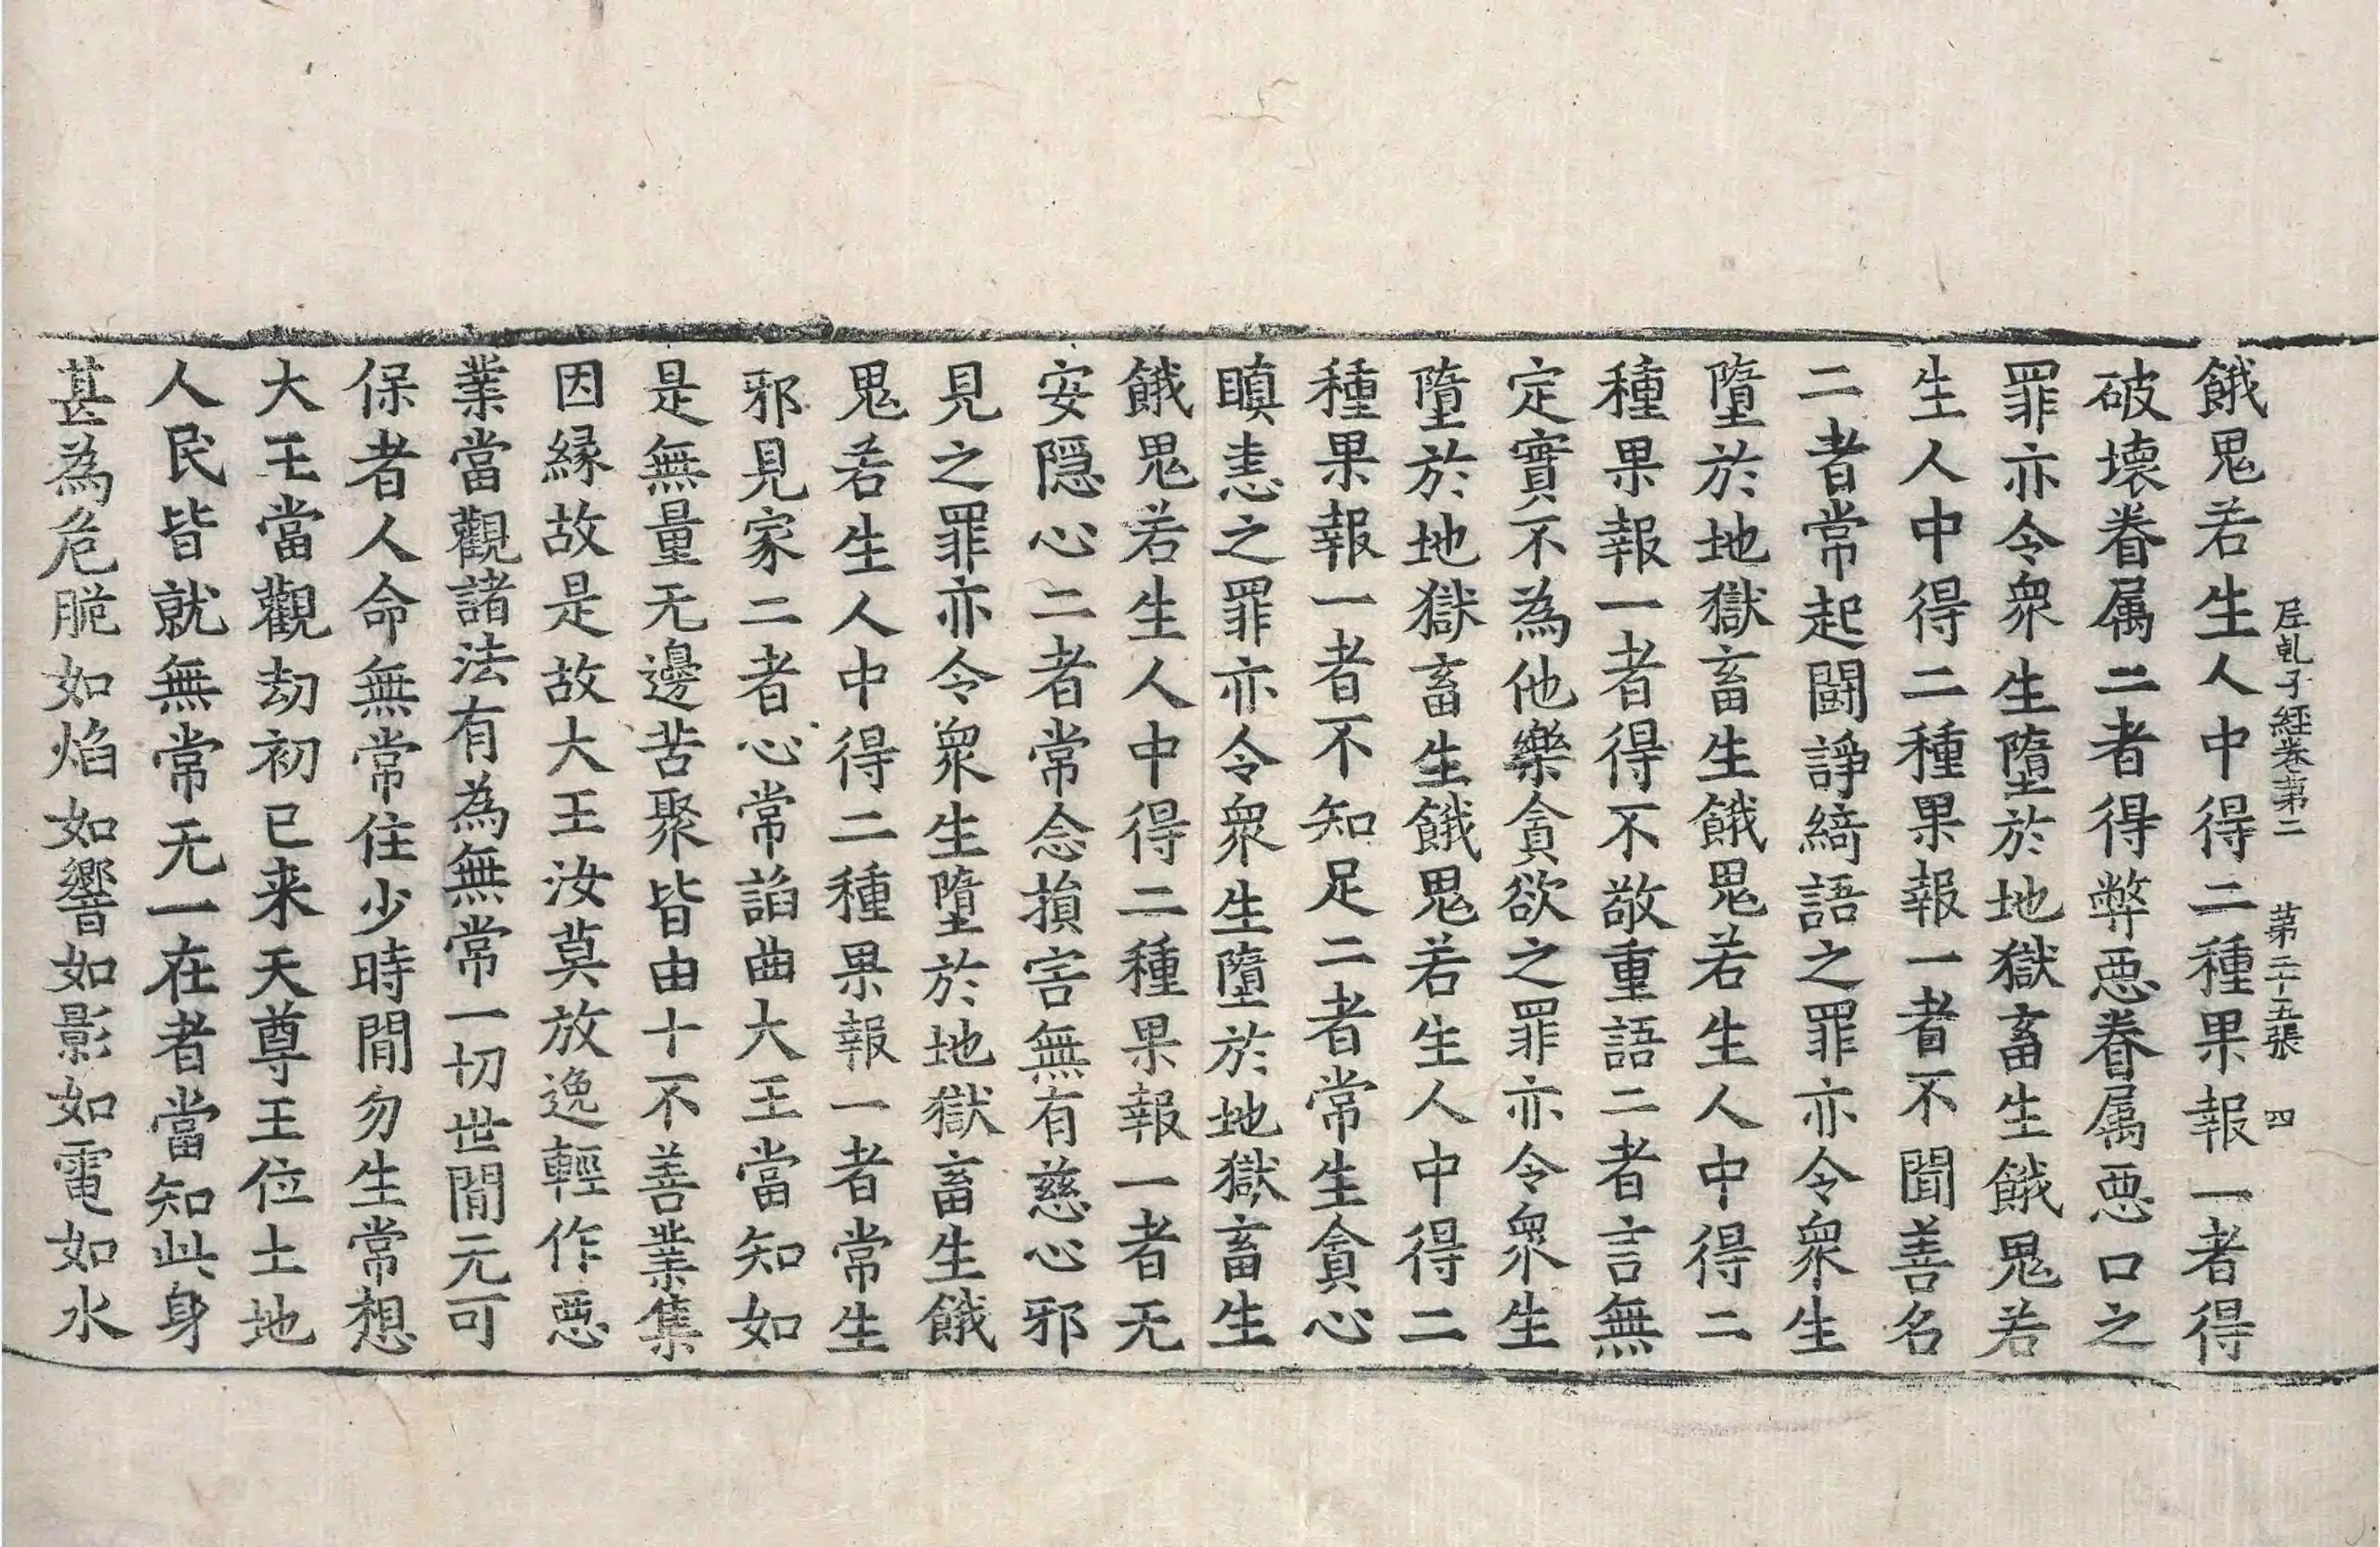 尼乹子經卷第二　第二十五張　四
餓鬼若生人中得二種果報一者得
破壞眷属二者得弊惡眷属惡口之
罪亦令衆生墮於地獄畜生餓鬼若
生人中得二種果報一者不聞善名
二者常起鬪諍綺語之罪亦令衆生
墮於地獄畜生餓鬼若生人中得二
種果報一者得不敬重語二者言無
定實不為他樂貪欲之罪亦令衆生
墮於地獄畜生餓鬼若生人中得二
種果報一者不知足二者常生貪心
瞋恚之罪亦令衆生墮於地獄畜生
餓鬼若生人中得二種果報一者无
安隱心二者常念損害無有慈心邪
見之罪亦令衆生墮於地獄畜生餓
鬼若生人中得二種果報一者常生
邪見家二者心常諂曲大王當知如
是無量无邊苦聚皆由十不善業集
因縁故是故大王汝莫放逸輕作惡
業當觀諸法有為無常一切世間元可
保者人命無常住少時間勿生常想
大王當觀劫初已来天尊王位土地
人民皆就無常无一在者當知此身
甚為危脆如焰如響如影如電如水